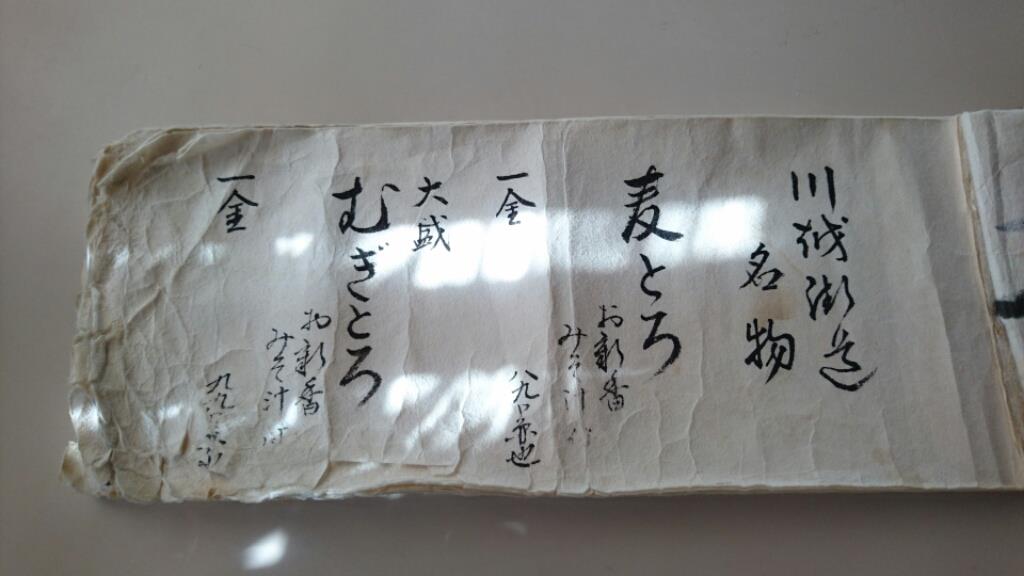 川越街道
名物
麦とろ
お新香
みそ汁付
一金
八九〇円也
大盛
むぎとろ
お新香
みそ汁付
一金
九九〇円也